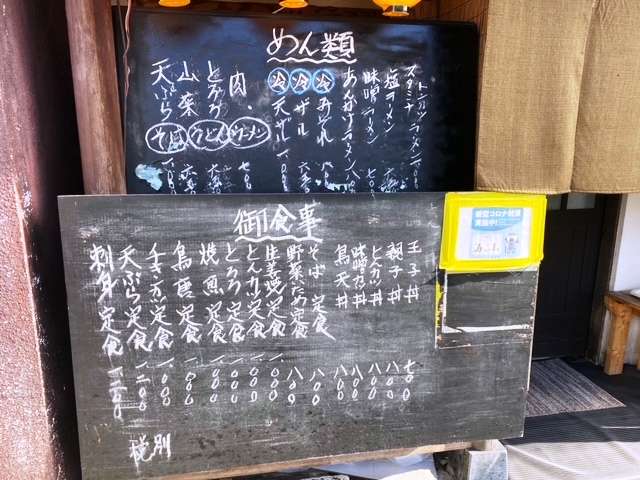 めん類
トンカツラーメン
スタミナ
塩ラーメン
味噌ラーメン
あんかけラーメン 八
冷 みぞれ
冷 ザル
冷 天ザル
肉・
とろろ
山菜
天ぷら
そば うどん ラーメン
御食事
玉子丼 七〇〇
親子丼 八〇〇
とんカツ丼 八〇〇
味噌カツ丼 八〇〇
鳥天丼 八〇〇
そば定食 八〇〇
野菜いため定食 八〇〇
生姜焼定食 一〇〇〇
とんカツ定食 一〇〇〇
とろろ定食 一〇〇〇
焼魚定食 一〇〇〇
鳥唐定食 一〇〇〇
天ぷら定食 一二〇〇
刺身定食 一二〇〇
税別
新型コロナ対策
実施中!